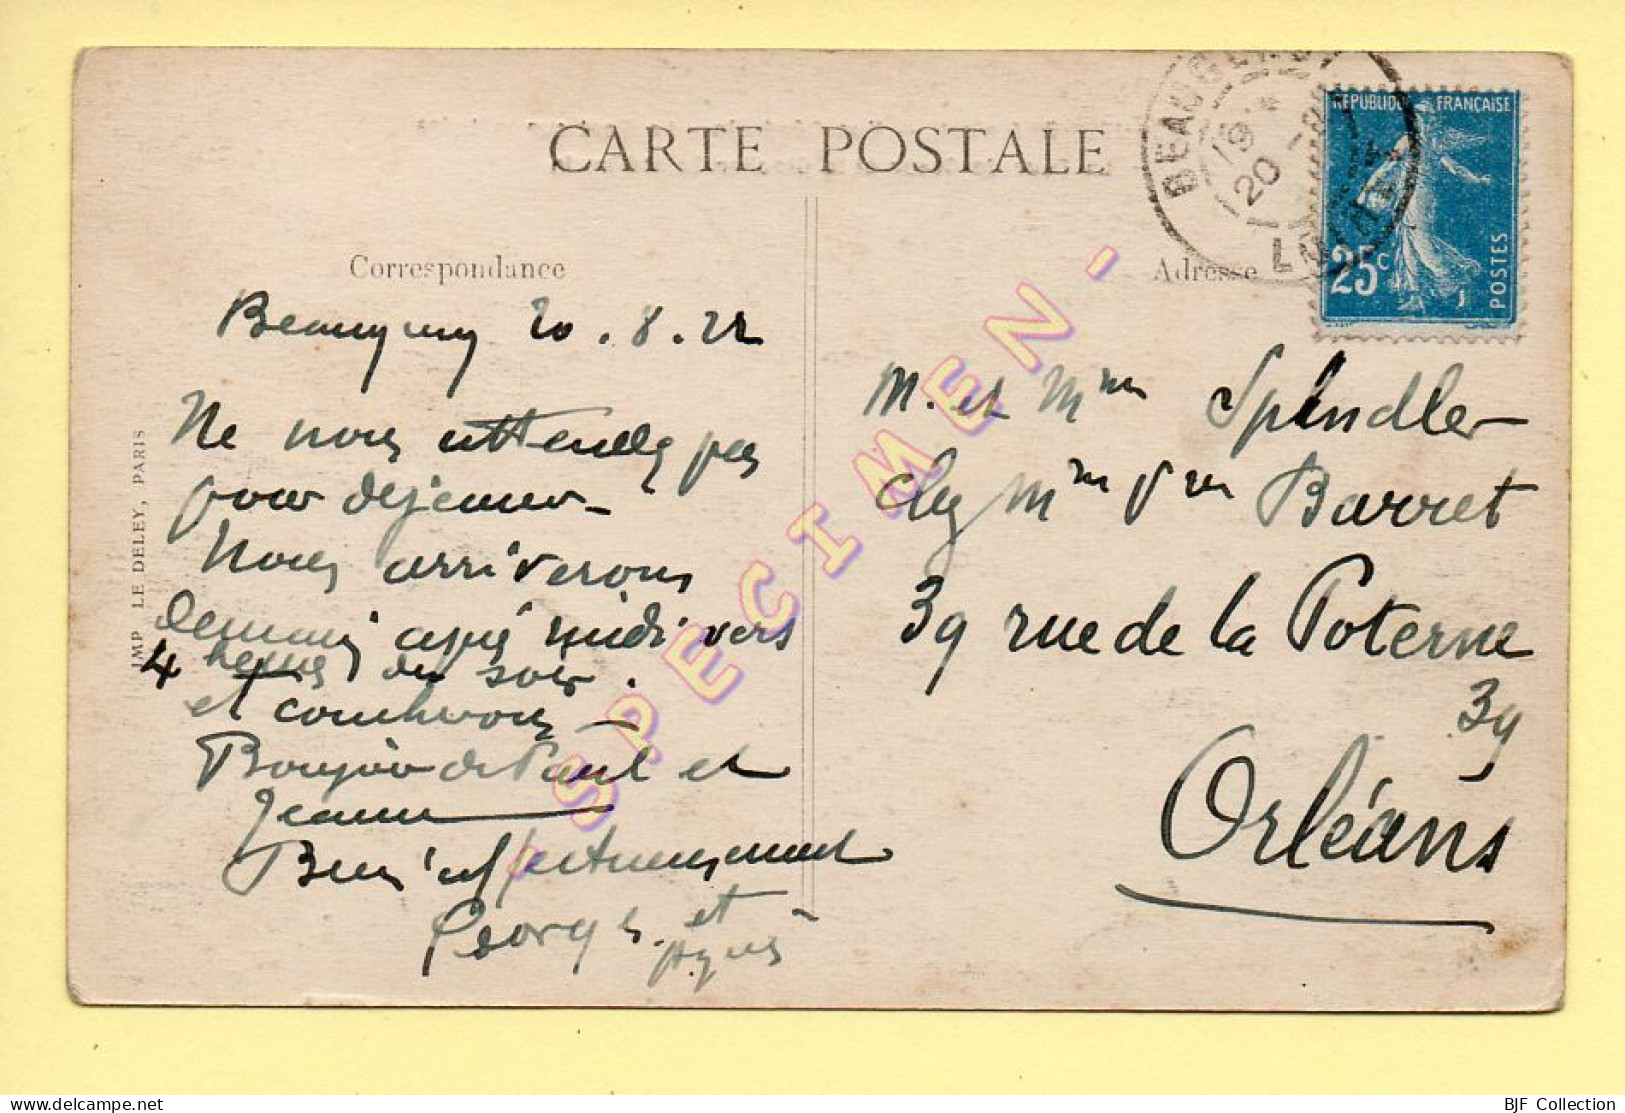 CARTE POSTALE
Correspondance
Beaugency 20.8.22
Ne nous attendez pas
pour déjeuner-
Nous arriverons
demain après midi vers
4 heures du soir.
et coucherons-
Bonjour de Paul et
Jeanne
Bien affectueusement
Georges et
Agnès
IMP LE DELEY, PARIS
BEAUGENCY
19
20 -8
LOIRET
REPUBLIQUE FRANÇAISE
25c
POSTES
Adresse
M. et Mme Spindler
chez Mme Vve Barret
39 rue de la Poterne
39
Orléans
- SPECIMEN -
BJF Collection